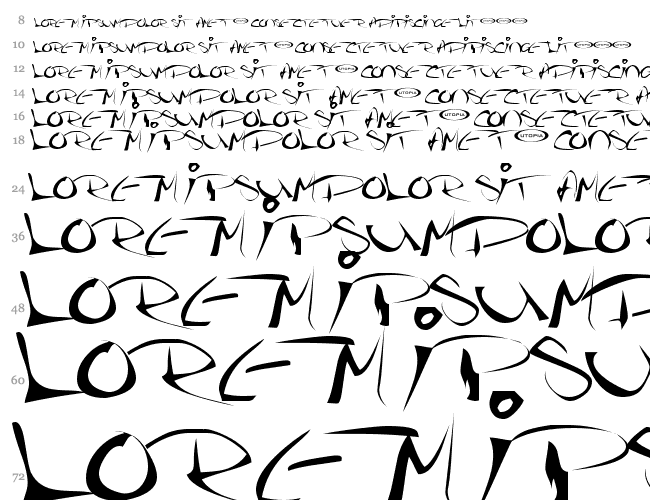 8 LOREM IPSUM DOLOR SIT AMET UTOPIA CONSECTETUER ADIPISCING ELIT UTOPIA UTOPIA UTOPIA
10 LOREM IPSUM DOLOR SIT AMET UTOPIA CONSECTETUER ADIPISCING ELIT UTOPIA UTOPIA UTOPIA
12 LOREM IPSUM DOLOR SIT AMET UTOPIA CONSECTETUER ADIPISCING
14 LOREM IPSUM DOLOR SIT AMET UTOPIA CONSECTETUER A
16 LOREM IPSUM DOLOR SIT AMET UTOPIA CONSECTETU
18 LOREM IPSUM DOLOR SIT AMET UTOPIA CONSE
24 LOREM IPSUM DOLOR SIT AME
36 LOREM IPSUM DOLOR
48 LOREM IPSUM D
60 LOREM IPSU
72 LOREM IPS